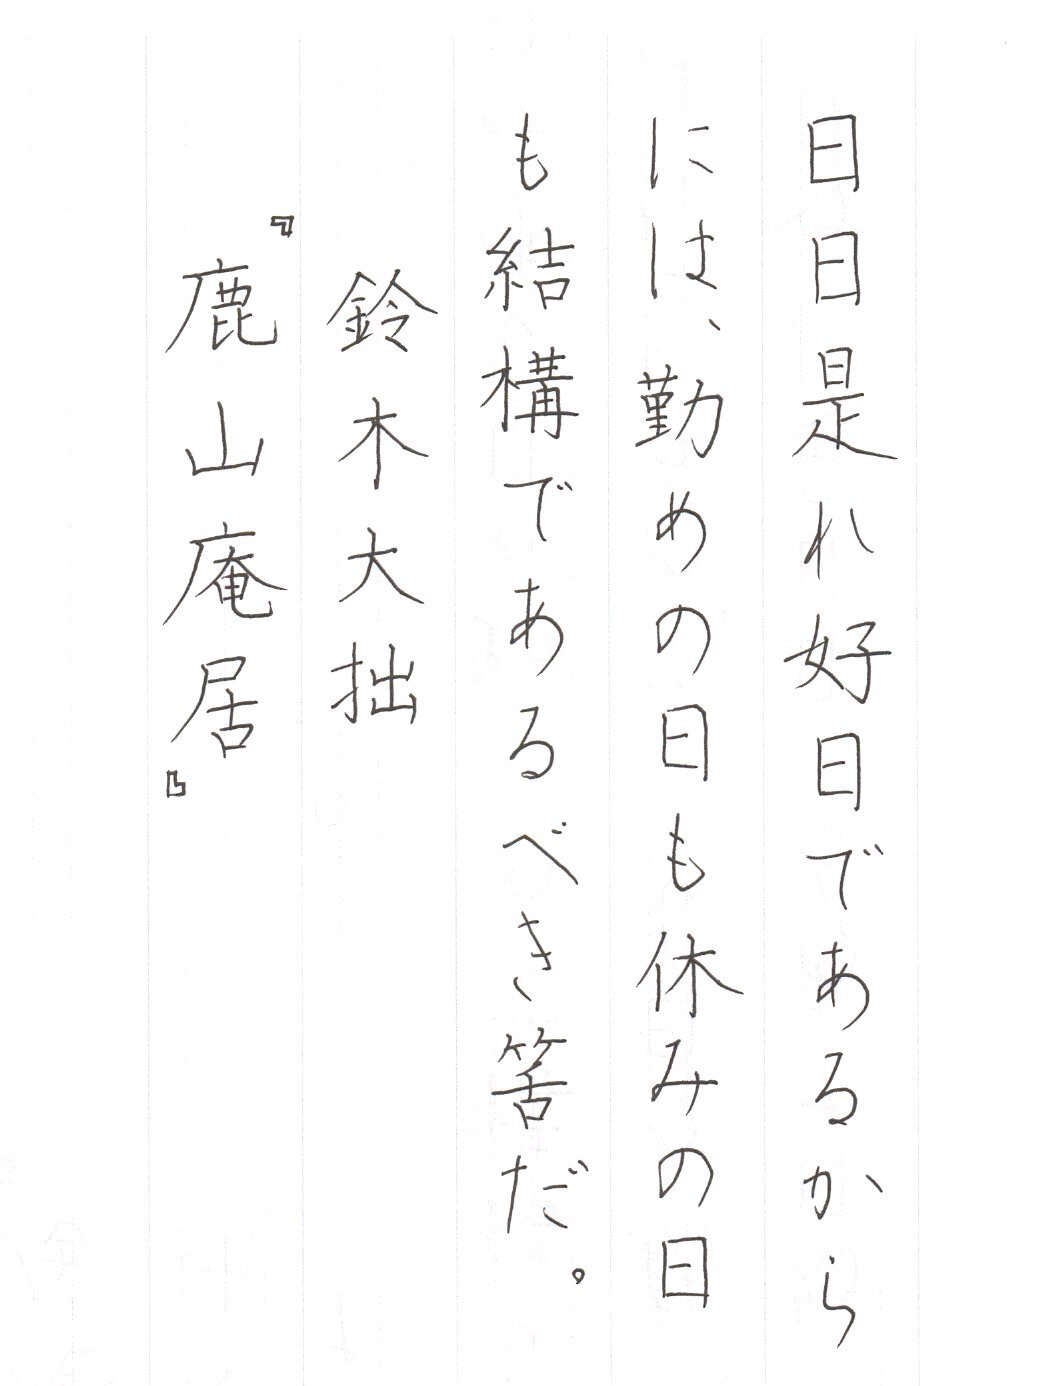 日日是れ好日であるから
には、勤めの日も休みの日
も結構であるべき筈だ。
鈴木大拙
『鹿山庵居』